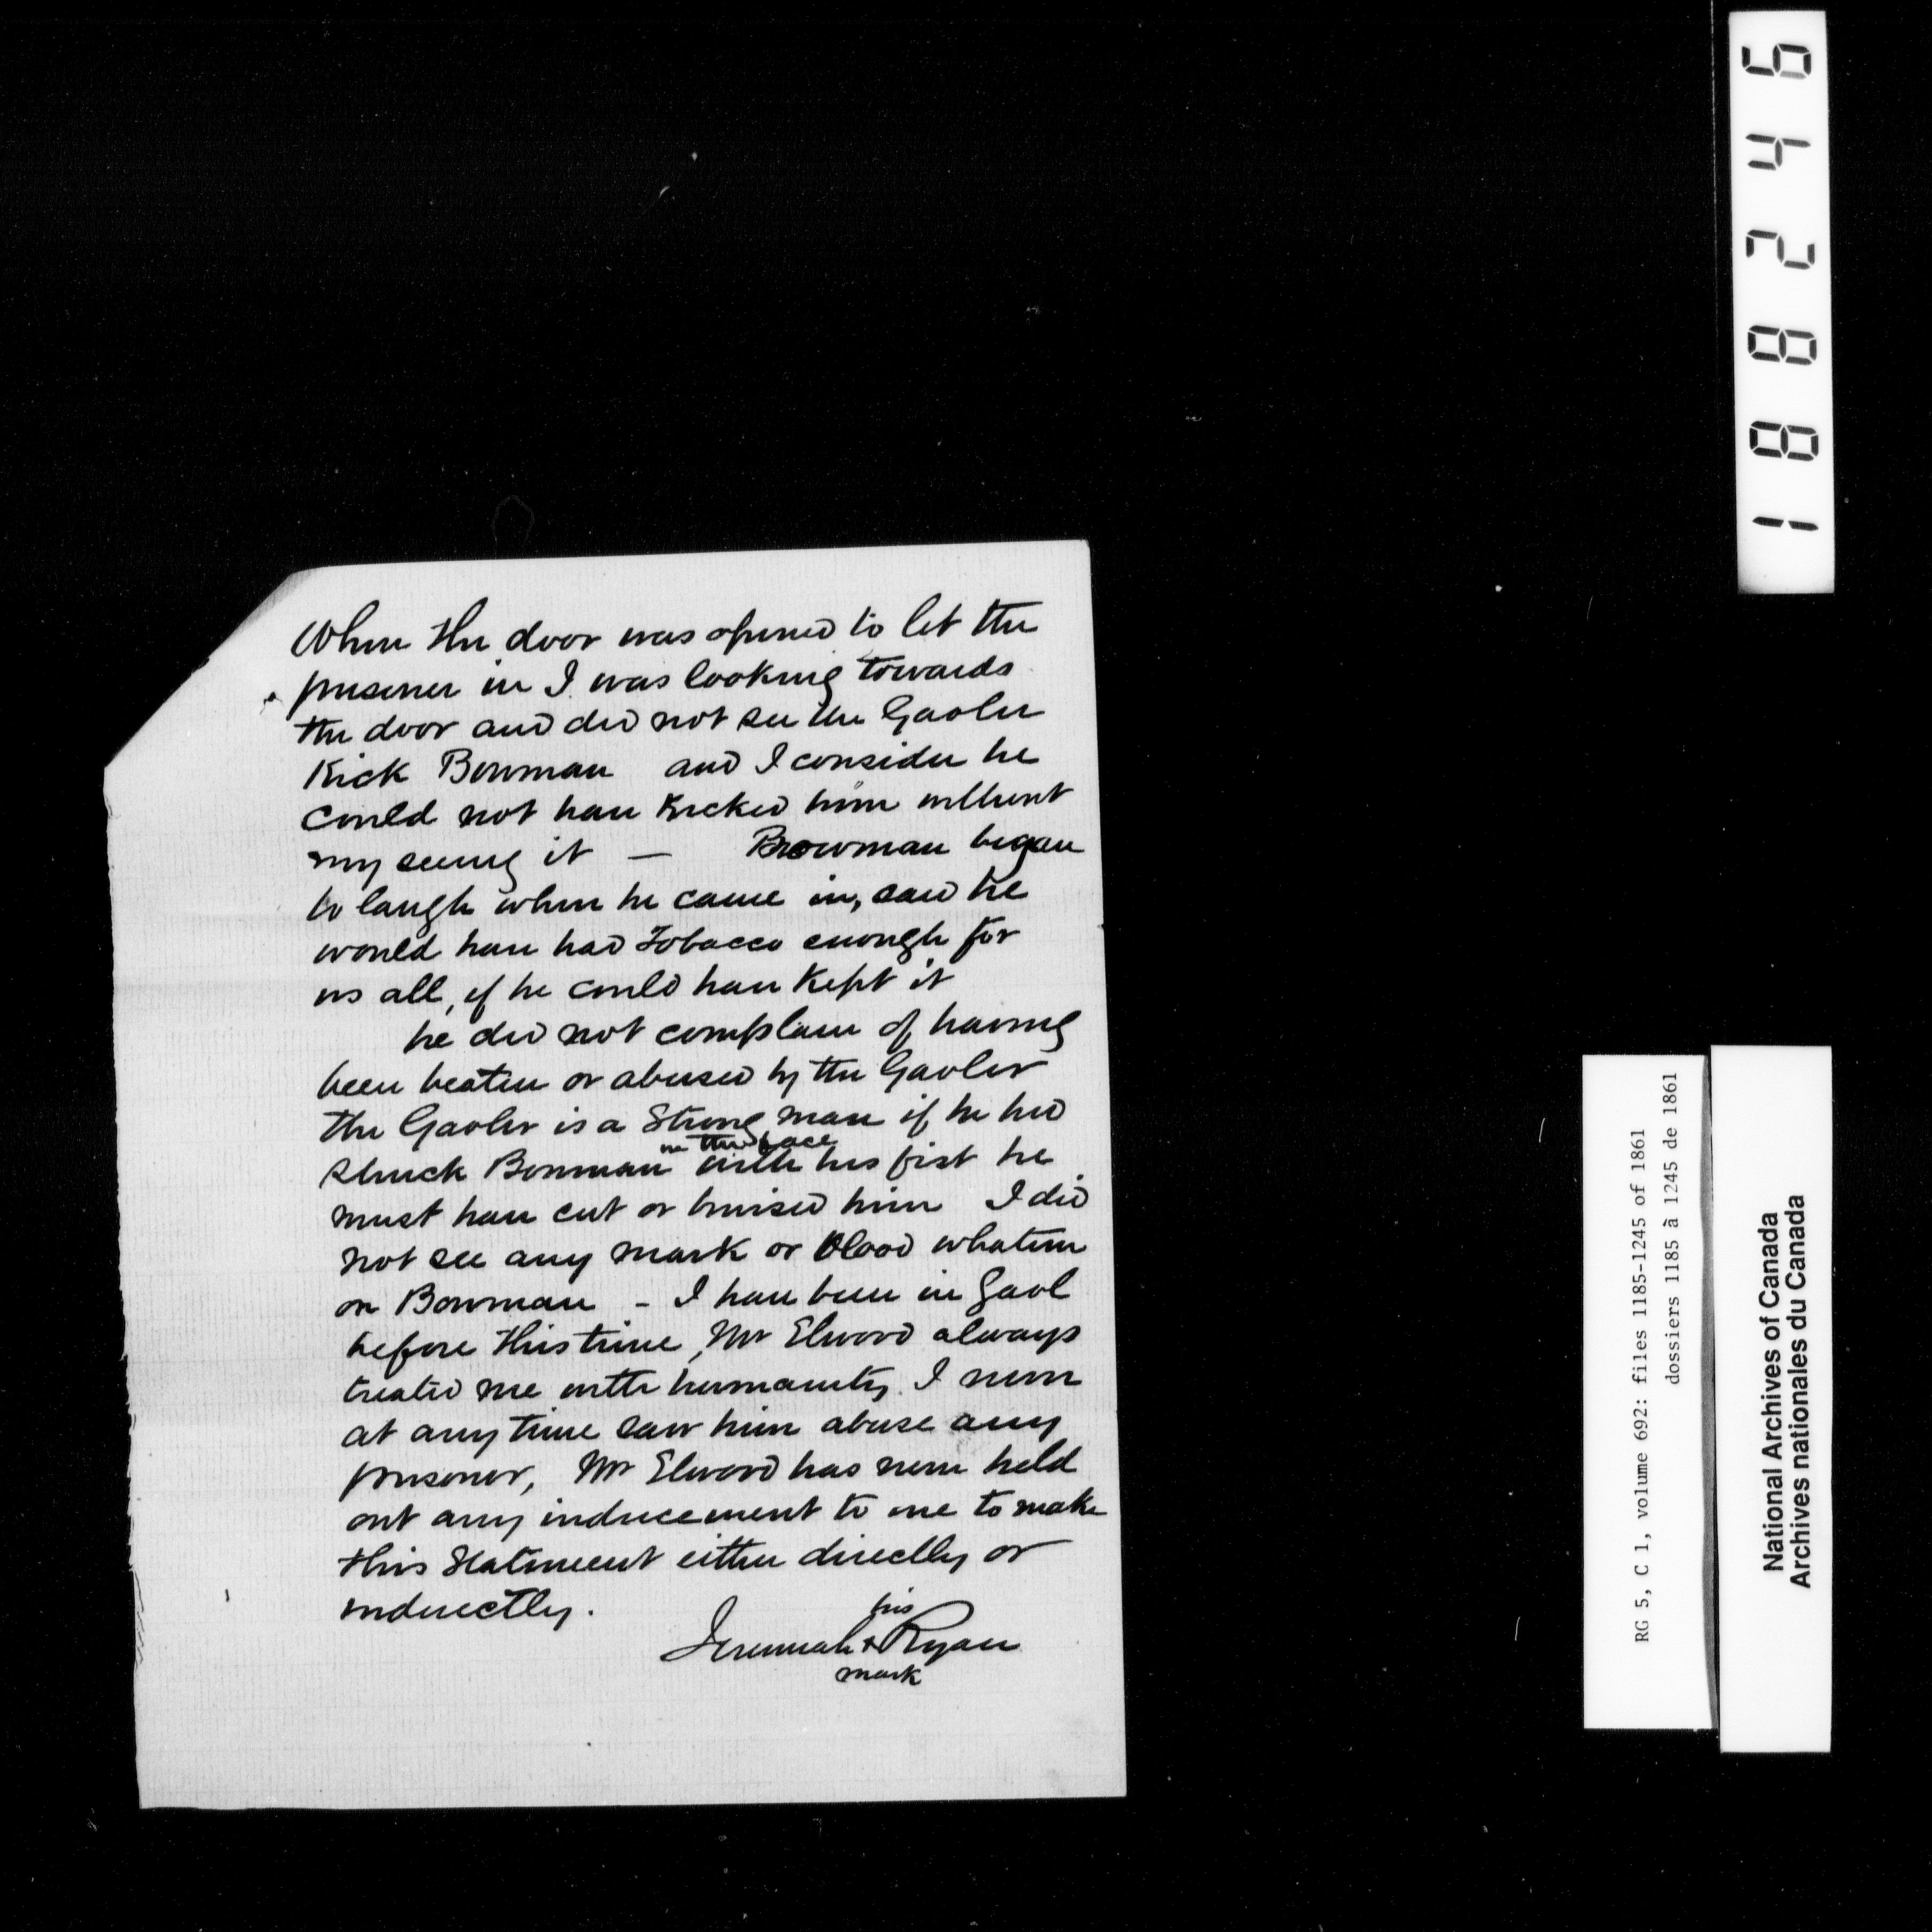 When the door was opened to let the
prisoner in I was looking towards
the door and did not see the Gaoler
Kick Bowman and I consider he
could not have Kicked him without
my seeing it — Browman began
to laugh when he came in, said he
would have had Tobacco enough for
us all, if he could have Kept it
he did not complain of having
been beaten or abused by the Gaoler
the Gaoler is a Strong man if he had
in the face
struck Bowman with his fist he
must have cut or bruised him I did
not see any mark or blood whatever
on Bowman - I have been in Gaol
before this time, Mr Elwood always
treated me with humanity. I never
at any time saw him abuse any
prisoner, Mr Elwood has never held
out any inducement to me to make
this Statement either directly or
indirectly.
his
Jeremiah + Ryan
mark
188246
RG 5, C 1, volume 692: files 1185-1245 of 1861
dossiers 1185 à 1245 de 1861
National Archives of Canada
Archives nationales du Canada